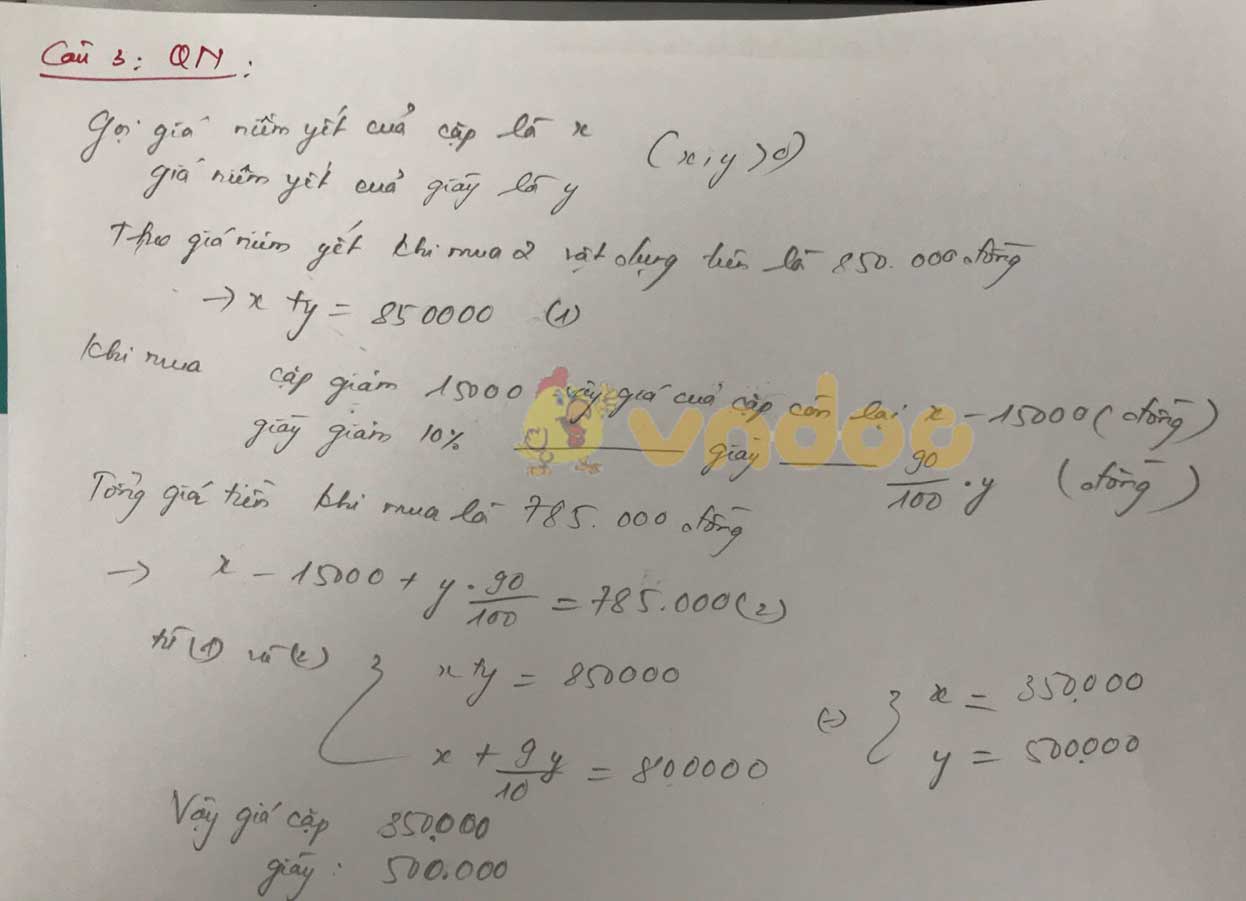 Câu 3: QN:
Gọi giá niêm yết của cặp là x
(x, y > 0)
giá niêm yết của giày là y
Theo giá niêm yết khi mua 2 vật dụng tiền là 850.000 đồng
→ x + y = 850000 (1)
Khi mua cặp giảm 15000 vậy giá của cặp còn lại x - 15000 (đồng)
giày giảm 10% ——— giày ——— 90/100 . y (đồng)
vndoc
Tổng giá tiền khi mua là 785.000 đồng
→ x - 15000 + y . 90/100 = 785.000 (2)
từ (1) và (2) { x + y = 850000
x + 9y/10 = 800000
(-) { x = 350.000
y = 500.000
Vậy giá cặp 350.000
giày : 500.000